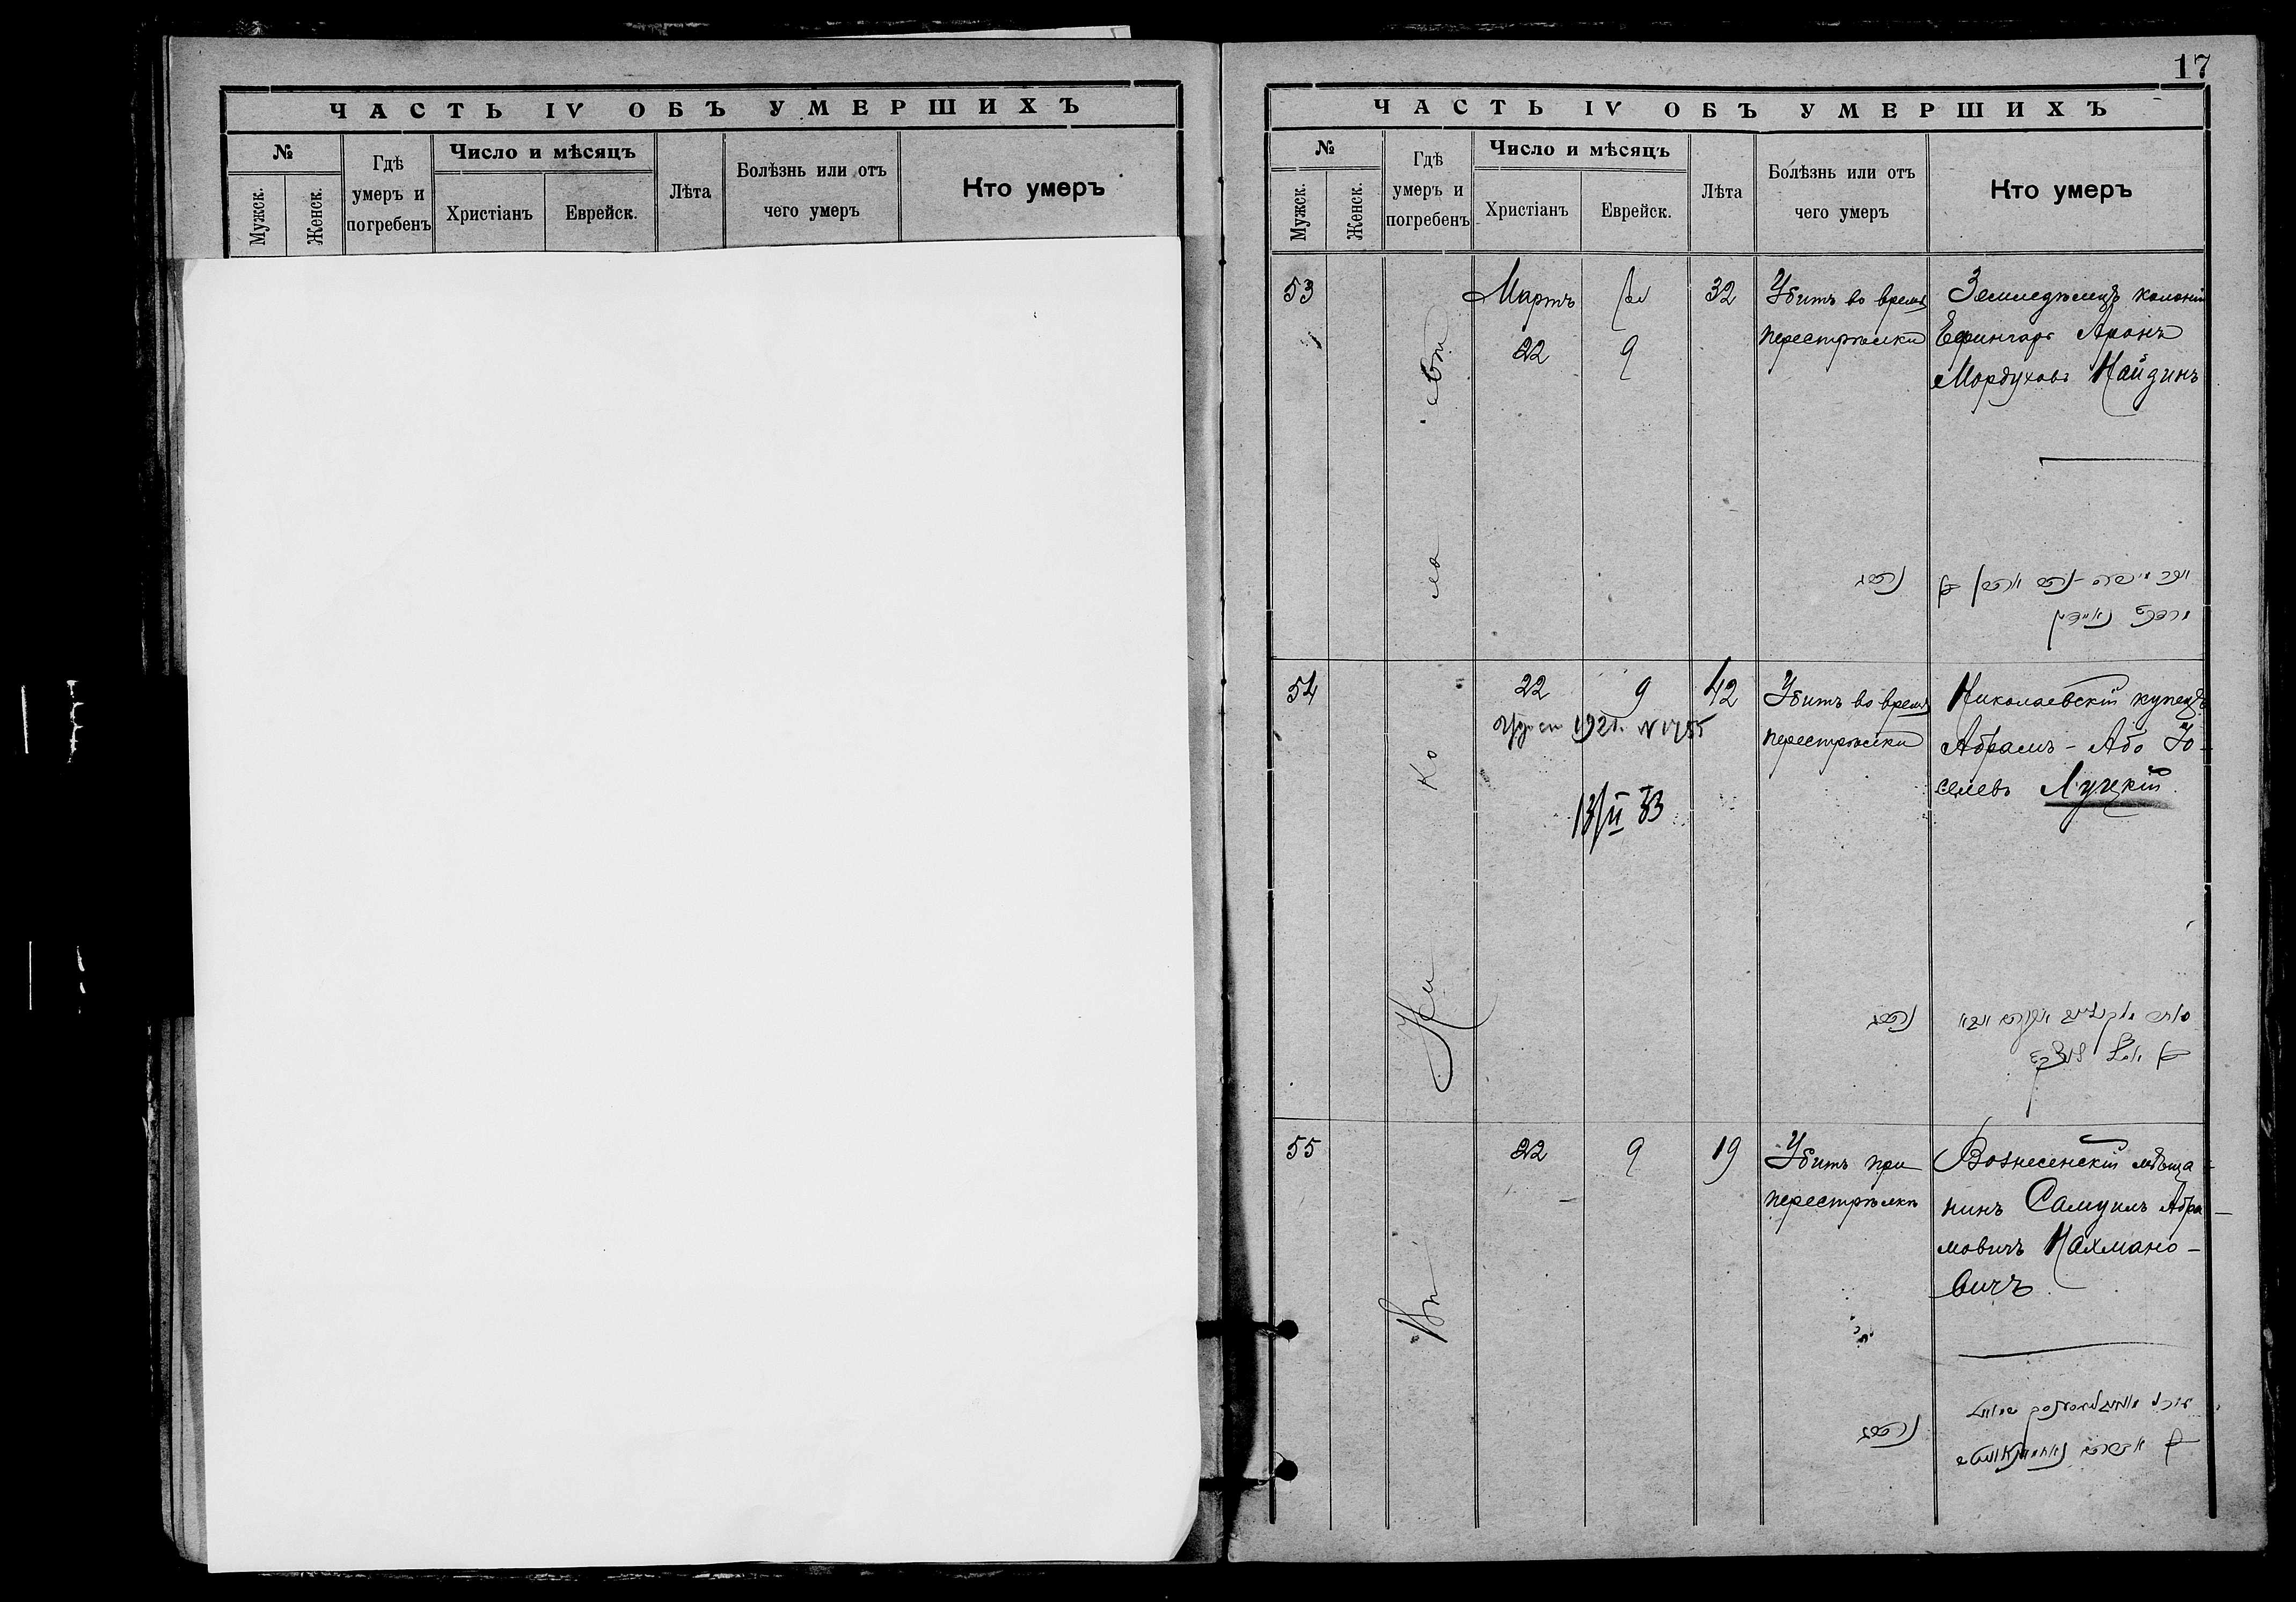 ЧАСТЬ IV ОБЪ УМЕРШИХЪ
№
Мужск.
Женск.
Гдѣ
умеръ и
погребенъ
Число и мѣсяцъ
Христіанъ
Еврейск.
Лѣта
Болѣзнь или отъ
чего умеръ
Кто умеръ
17
ЧАСТЬ IV ОБЪ УМЕРШИХЪ
№
Мужск.
Женск.
Гдѣ
умеръ и
погребенъ
Число и мѣсяцъ
Христіанъ
Еврейск.
Лѣта
Болѣзнь или отъ
чего умеръ
Кто умеръ
Въ Николаевѣ
53
Мартъ
22
9
32
Убитъ во время
перестрѣлки
Земледѣлецъ колоніи
Ефингаръ Аронъ
Мордуховъ Найдинъ
54
22
9
42
1921. N 1755
13/II 33
Убитъ во время
перестрѣлки
Николаевскій купецъ
Абрамъ - Або Іо-
селевъ Луцкій
55
22
9
19
Убитъ при
перестрѣлкѣ
Вознесенскій мѣща-
нинъ Самуилъ Абра-
мовичъ Нахмано-
вичъ